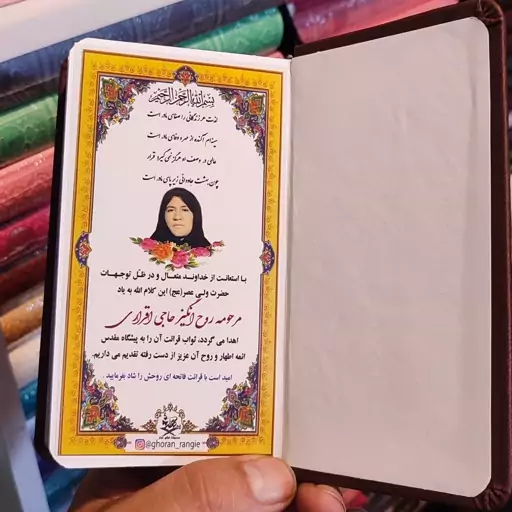 بسم الله الرحمن الرحیم
لذت هر زندگانی را صفای مادر است
سینه‌ام آکنده از مهر و وفای مادر است
عالمی در وصف او هرگز نمی گیرد قرار
چون بهشت جاودانی زیر پای مادر است
با استعانت از خداوند متعال و در ظل توجهات
حضرت ولی عصر(عج) این کلام الله به یاد
مرحومه روح انگیز حاجی اقراری
اهدا می گردد، ثواب قرائت آن را به پیشگاه مقدس
ائمه اطهار و روح آن عزیز از دست رفته تقدیم می داریم.
امید است با قرائت فاتحه ای روحش را شاد بفرمایید .
@ghoran_rangie